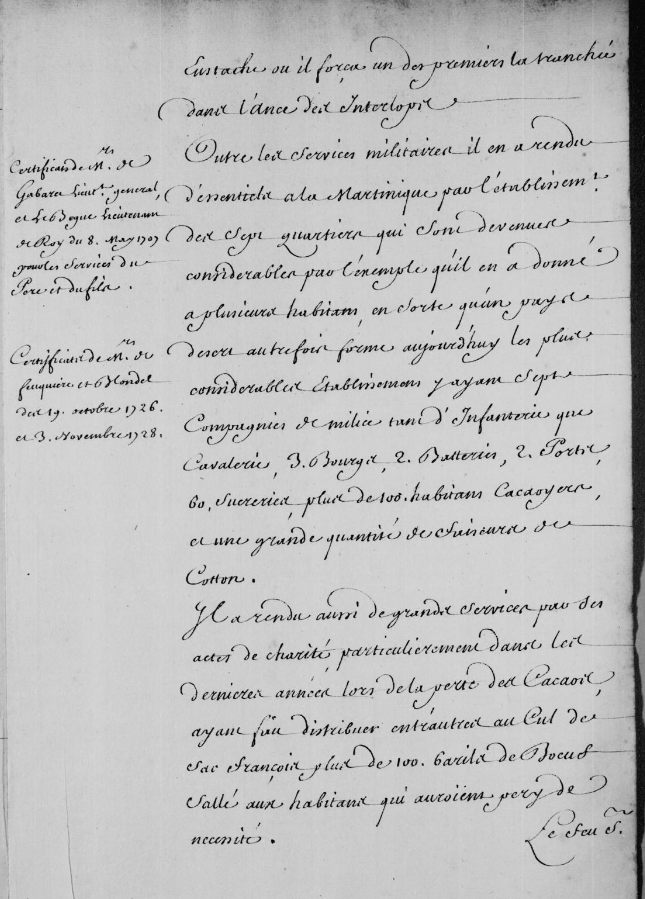 Eustache ou il força un des premiers la tranchée
dans l'Ance des Interlopes
Outre les services militaires il en a rendu
d'essentiels a la Martinique par l'établissemt.
des Sept quartiers qui sont devenues
considerables par l'éxemple qu'il en a donné
a plusieurs habitans, en sorte qu'un pays
desert autrefois forme aujourd'huy les plus
considerables Etablissemens y ayant Sept
Compagnies de milice tant d'Infanterie que
Cavalerie, 3. Bourgs, 2. Batteries, 2. Ports
60, sucreries, plus de 100. habitans Cacaoyers,
et une grande quantité de faiseurs de
Cotton.
Il a rendu aussi de grands services par ses
actes de charité particulierement dans les
dernieres années lors de la perte des Cacaos,
ayant fait distribuer entr'autres au Cul de
Sac François plus de 100. barils de Boeuf
Sallé aux habitans qui auroient pery de
necessité.
Le feu Sr.
Certificats de Mrs. de
Gabaret Lieutt. general,
et Le Begue Lieutenant
de Roy du 8. May 1707
pour les Services du
Pere et du fils.
Certificats de Mrs. de
feuquiere et Blondel
des 19. octobre 1726.
et 3. Novembre 1728.